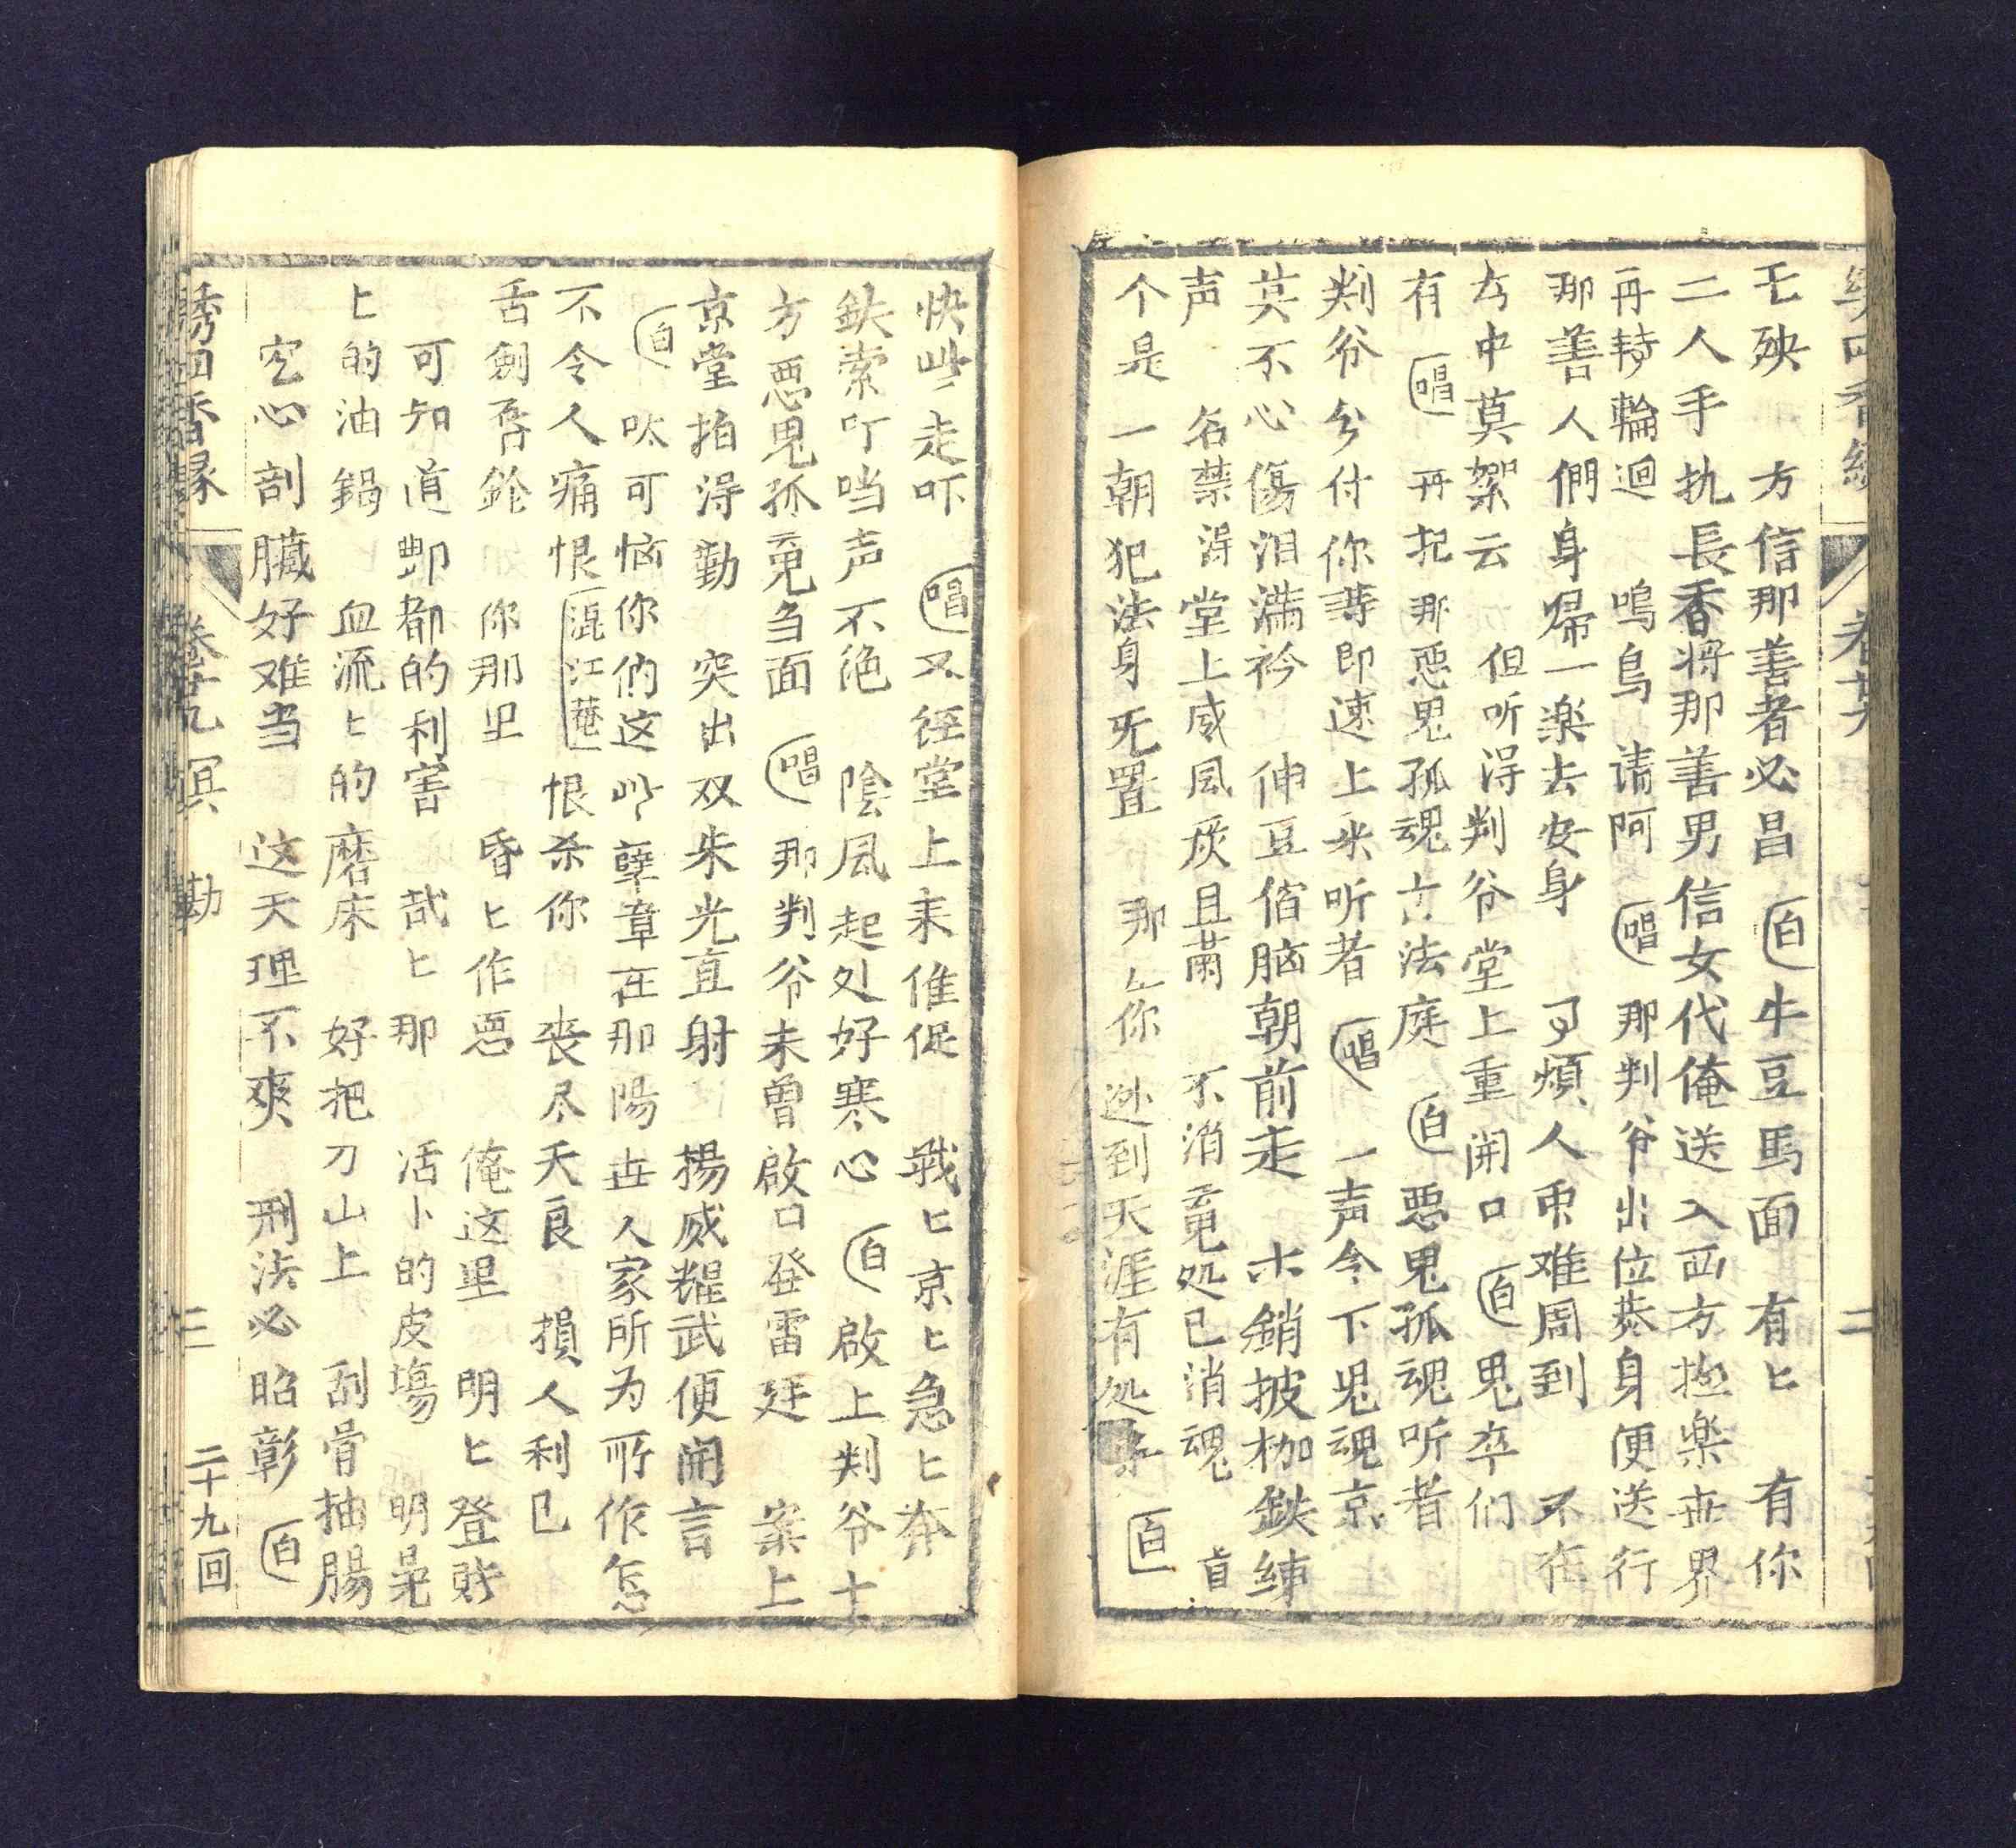 卷廿九
二
无殃　方信那善者必昌　白　牛豆馬面　有匕　有你
二人手执長香将那善男信女代俺送入西方極楽世界
再转輪迴　鳴鳥　请阿　唱　那判爷出位恭身便送行
那善人們身帰一楽去安身　可煩人衆难周到　不在
中莫絮云　但听得判爷堂上重開口　白　鬼卒们
有　唱　再把那惡鬼孤魂六法庭　白　惡鬼孤魂听者
判爷分付你等即速上来听者　唱　一声令下鬼魂京
莫不心傷泪满衿　伸豆宿脑朝前走　木銷披枷鉄練
声　名禁淂堂上威風　且肅　不消竟処已消魂　盲
个是一朝犯法身旡置　那　你逃到天涯有处　白
快些走吓　唱　又径堂上来催促　戰匕京匕急匕奔
鉄索叮噹声不绝　陰風起处好寒心　白　啟上判爷十
方惡鬼孤竟刍面　唱　那判爷未曾啟口發雷廷　案上
京堂拍淂勤　突出双朱光直射　揚威耀武便開言
白　呔可恼你们这些孽章在那陽世人家所为所作怎
不令人痛恨　混江菴　恨杀你　丧尽天良　損人利已
舌劍唇鎗　你那里　昏匕作惡　俺这里　明匕登賬
可知道酆都的利害　哉匕那　活卜的皮場　明晃
匕的油鍋　血流匕的磨床　好把刀山上　刮骨抽腸
空心剖臓好难当　这天理不爽　刑法必昭彰　白
誘四香縁　卷廿九　冥勘　三　二十九回